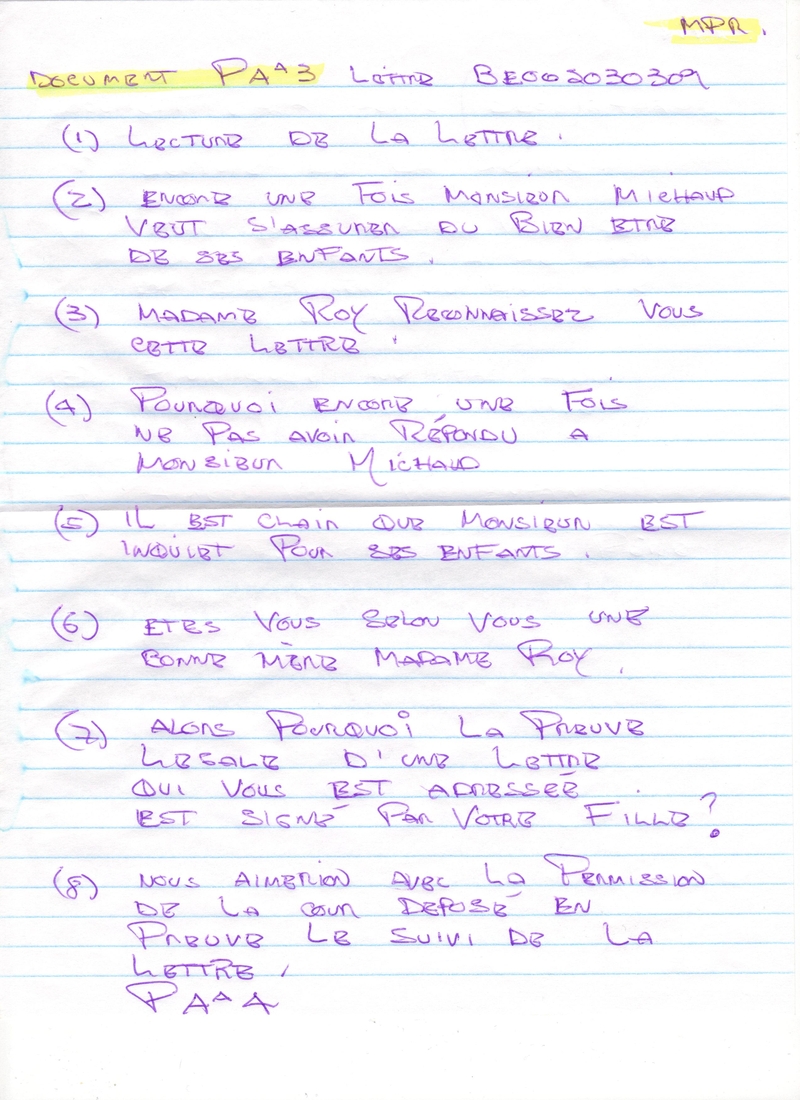 MPR.
DOCUMENT PA^A3 LETTRE BE005030309
(1) LECTURE DE LA LETTRE.
(2) ENCORE UNE FOIS MONSIEUR MICHAUD
VEUT S'ASSURER DU BIEN ETRE
DE SES ENFANTS.
(3) MADAME ROY RECONNAISSEZ VOUS
CETTE LETTRE.
(4) POURQUOI ENCORE UNE FOIS
NE PAS AVOIR RÉPONDU A
MONSIEUR MICHAUD
(5) IL EST CLAIR QUE MONSIEUR EST
INQUIET POUR SES ENFANTS.
(6) ETES VOUS SELON VOUS UNE
BONNE MÈRE MADAME ROY.
(7) ALORS POURQUOI LA PREUVE
LEGALE D'UNE LETTRE
QUI VOUS EST ADRESSÉE
EST SIGNÉ PAR VOTRE FILLE?
(8) NOUS AIMERION AVEC LA PERMISSION
DE LA COUR DEPOSÉ EN
PREUVE LE SUIVI DE LA
LETTRE,
PA^A4